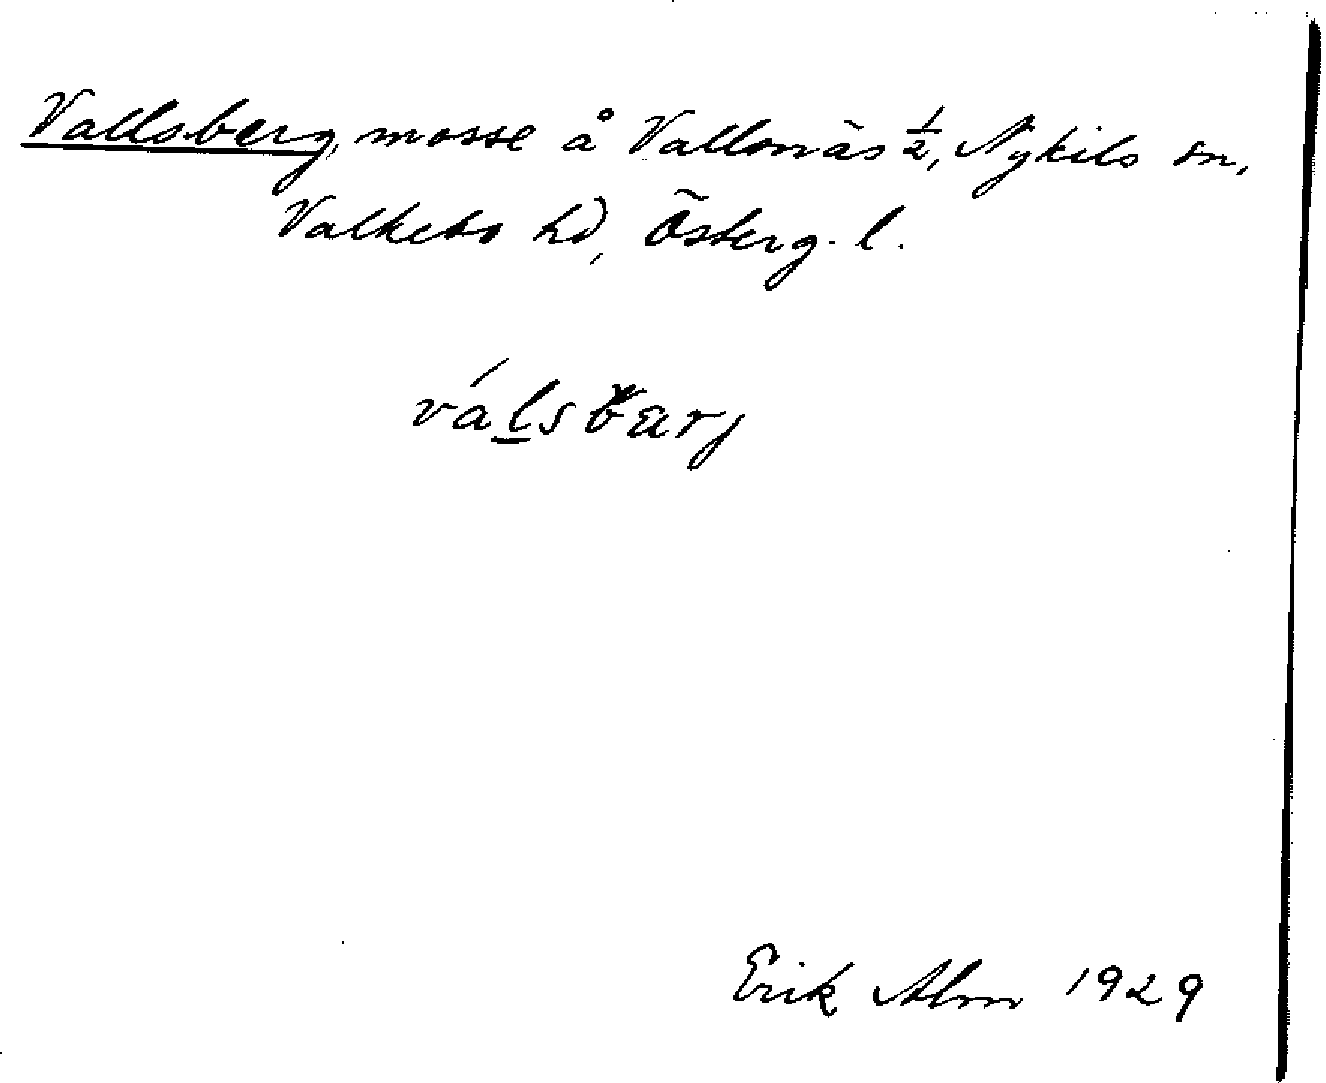 Vallsberg, mosse å Vallsnäs ½, Nykils sn,
Valkebo hd, Österg. l.
válsbarj
Erik Alm 1929